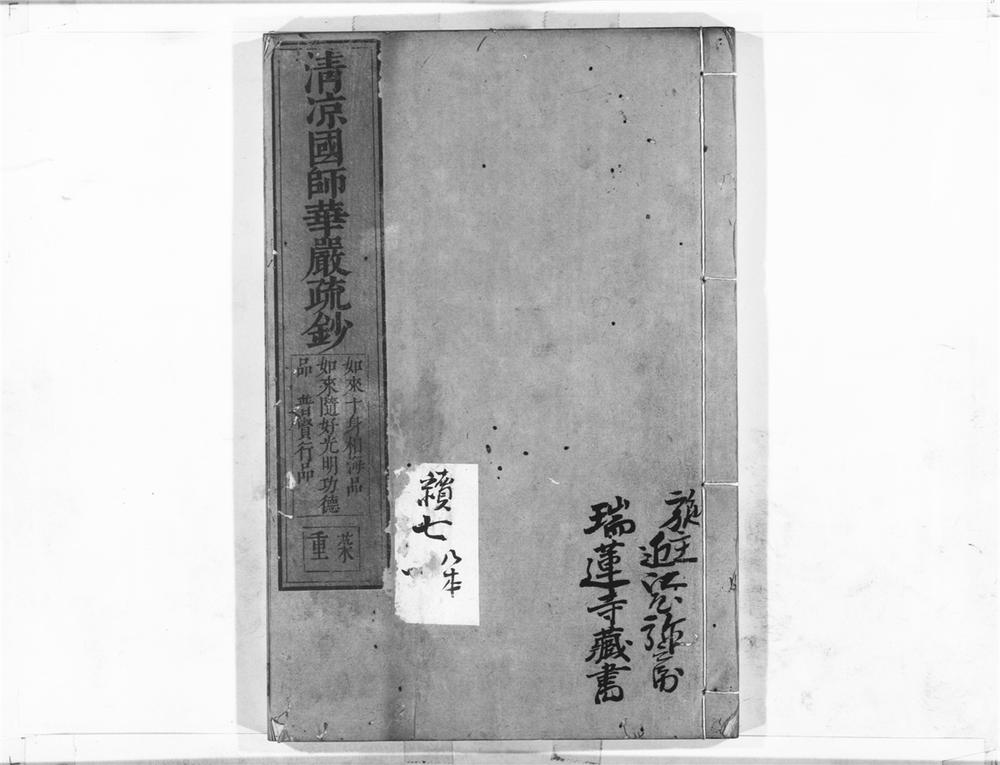 施主近江
瑞蓮寺藏書
七
八本
清凉國師華嚴疏鈔
如來十身相海品
如來隨好光明功德
品 普賢行品
菜
重